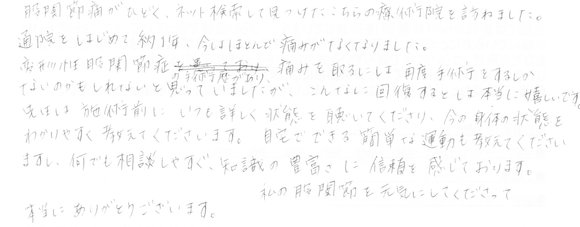 股関節痛がひどく、ネット検索して見つけたこちらの療術院を訪ねました。
通院をはじめて約1年、今はほとんど痛みがなくなりました。
変形性股関節症の手術歴があり、痛みを取るには再度手術をするか
ないのかもしれないと思っていましたが、こんなに回復するとは本当に嬉しいです。
先生は施術前にいつも詳しく状態を聴いてくださり、今の身体の状態を
わかりやすく教えてくださいます。自宅でできる簡単な運動も教えてください
ますし、何でも相談しやすく、知識の豊富さに信頼を感じております。
私の股関節を元気にしてくださって
本当にありがとうございます。